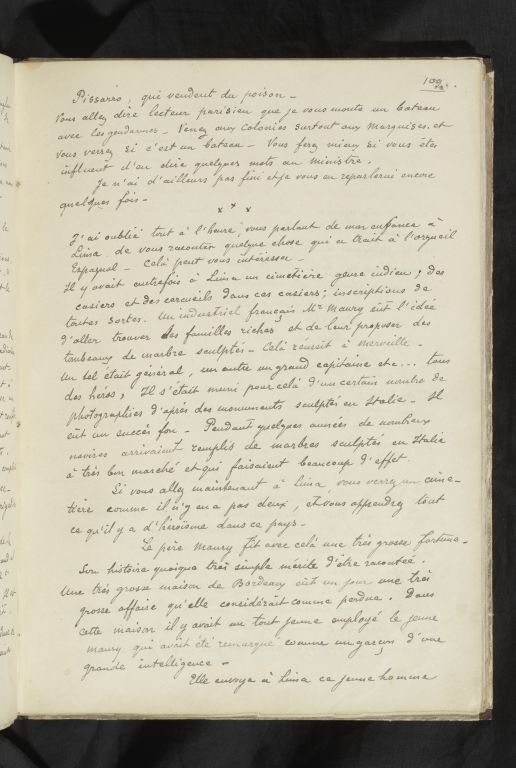 109.
Pissarro, qui vendent du poison —
Vous allez dire lecteur parisien que je vous monte un bateau
avec les gendarmes — Venez aux Colonies surtout aux Marquises, et
vous verrez si c'est un bateau — Vous ferez mieux si vous êtes
influent d'en dire quelques mots au ministre.
Je n'ai d'ailleurs pas fini et je vous en reparlerai encore
quelques fois —
x x x
J'ai oublié tout à l'heure, vous parlant de mon enfance à
Lima de vous raconter quelque chose qui a trait à l'orgueil
Espagnol — Celà peut vous intéresser —
Il y avait autrefois à Lima un cimetière genre indien; des
casiers et des cercueils dans ces casiers; inscriptions de
toutes sortes. Un industriel français Mr Maury eût l'idée
d'aller trouver des familles riches et de leur proposer des
tombeaux de marbre sculptés — Celà réussit à merveille —
Un tel était général, un autre un grand capitaine etc... tous
des héros; Il s'était muni pour celà d'un certain nombre de
photographies d'après des monuments sculptés en Italie — Il
eût un succès fou — Pendant quelques années de nombreux
navires arrivaient remplis de marbres sculptés en Italie
à très bon marché et qui faisaient beaucoup d'effet.
Si vous allez maintenant à Lima, vous verrez un cime-
tière comme il n'y en a pas deux, et vous apprendrez tout
ce qu'il y a d'héroïsme dans ce pays —
Le père Maury fit avec celà une très grosse fortune —
Son histoire quoique très simple mérite d'être racontée.
Une très grosse maison de Bordeaux eût un jour une très
grosse affaire qu'elle considérait comme perdue. Dans
cette maison il y avait un tout jeune employé le jeune
Maury qui avait été remarqué comme un garçon d'une
grande intelligence —
Elle envoya à Lima ce jeune homme